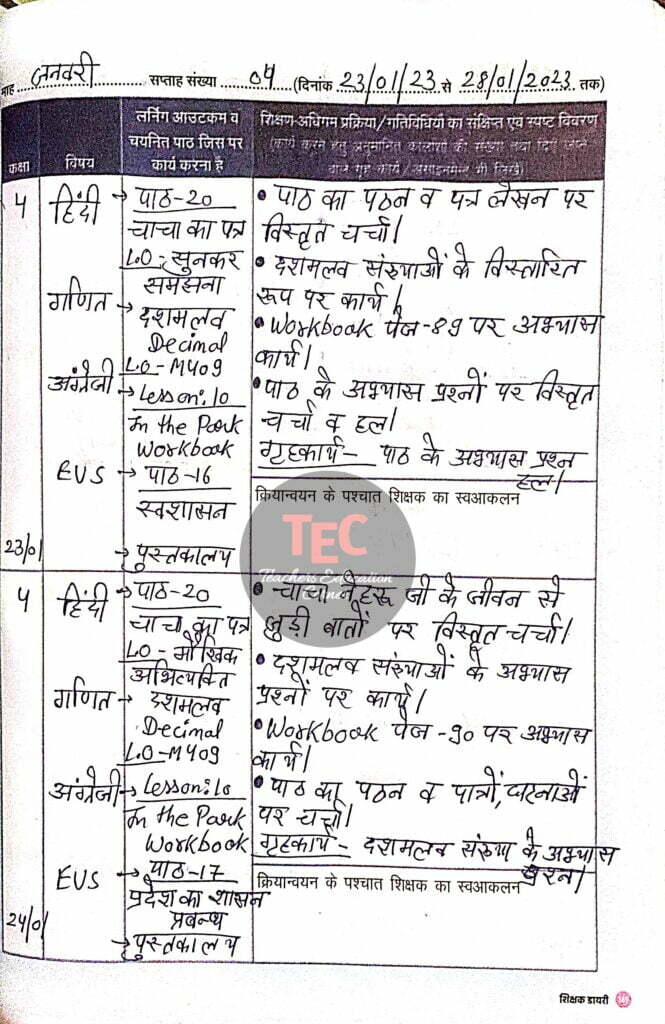 माह जनवरी सप्ताह संख्या 04 (दिनांक 23/01/23 से 28/01/2023 तक)
कक्षा
विषय
लर्निंग आउटकम व
चयनित पाठ जिस पर
कार्य करना है
शिक्षण-अधिगम प्रक्रिया/गतिविधियों का संक्षिप्त एवं स्पष्ट विवरण
(कार्य करने हेतु अनुमानित कालांशों की संख्या तथा दिए जाने
वाले गृह कार्य / असाइनमेंट भी लिखें)
4
हिंदी
→ पाठ-20
चाचा का पत्र
L.O - सुनकर
समझना
• पाठ का पठन व पत्र लेखन पर
विस्तृत चर्चा।
गणित → दशमलव
Decimal
L.O - M409
• दशमलव संख्याओं के विस्तारित
रूप पर कार्य।
• Workbook पेज-89 पर अभ्यास
कार्य।
अंग्रेजी → Lesson:10
In the Park
Workbook
• पाठ के अभ्यास प्रश्नों पर विस्तृत
चर्चा व हल।
गृहकार्य - पाठ के अभ्यास प्रश्न
हल।
EVS → पाठ-16
स्वशासन
→ पुस्तकालय
क्रियान्वयन के पश्चात शिक्षक का स्वआकलन
23/01
TEC
Teachers Education
Corner
4
हिंदी
→ पाठ-20
चाचा का पत्र
L.O - मौखिक
अभिव्यक्ति
• चाचा नेहरू जी के जीवन से
जुड़ी बातों पर विस्तृत चर्चा।
गणित → दशमलव
Decimal
L.O - M409
• दशमलव संख्याओं के अभ्यास
प्रश्नों पर कार्य।
• Workbook पेज-90 पर अभ्यास
कार्य।
अंग्रेजी → Lesson:10
In the Park
Workbook
• पाठ का पठन व पात्रों, घटनाओं
पर चर्चा।
गृहकार्य - दशमलव संख्या के अभ्यास
प्रश्न।
EVS → पाठ-17
प्रदेश का शासन
प्रबन्ध
→ पुस्तकालय
क्रियान्वयन के पश्चात शिक्षक का स्वआकलन
24/01
शिक्षक डायरी